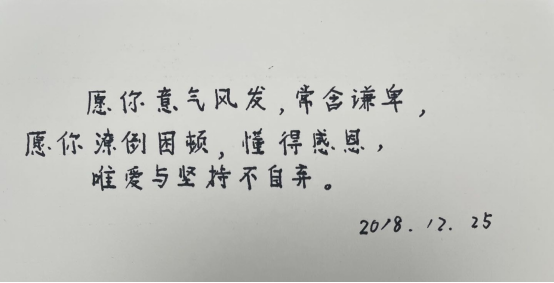 愿你意气风发，常含谦卑，
愿你潦倒困顿，懂得感恩，
唯爱与坚持不自弃。
2018.12.25